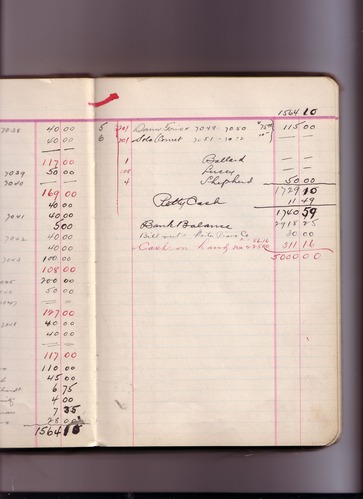 7038 40 00
40 00
117 00
7039 50 00
7040
169 00
40 00
7041 40 00
5 00
7042 40 00
40 00
7043 100 00
108 00
200 00
50 00
127 00
40 00
40 00
117 00
110 00
45 00
6 75
4 00
7 35
25 00
1564 10
1564 10
5 701 7049 - 7050 115 00
6 701 Solo Cornet 7051 - 7072
1 Ballard
Lucey
4 Shepherd 50 00
1729 10
Petty Cash 11 49
1740 59
Bank Balance 2918 25
30 00
Cash on hand 311 16
5000 00